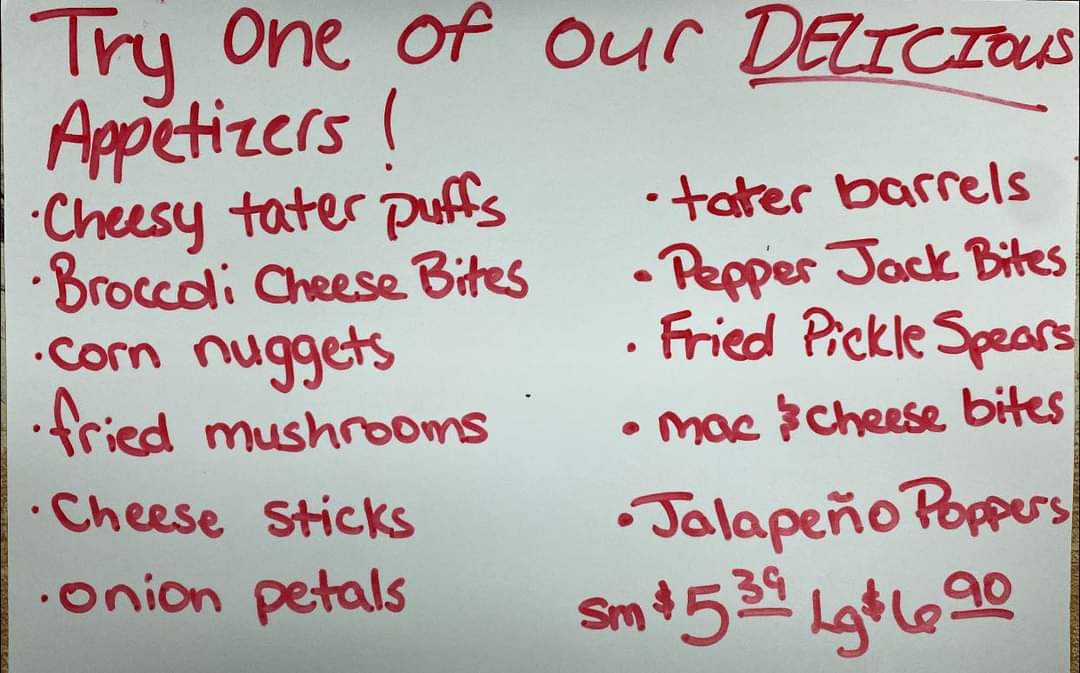 Try One of our DELICIOUS
Appetizers!
·Cheesy tater puffs
·Broccoli Cheese Bites
·corn nuggets
·fried mushrooms
·Cheese sticks
·onion petals
·tater barrels
·Pepper Jack Bites
·Fried Pickle Spears
·mac & cheese bites
·Jalapeño Poppers
Sm $5 39 Lg $6 90